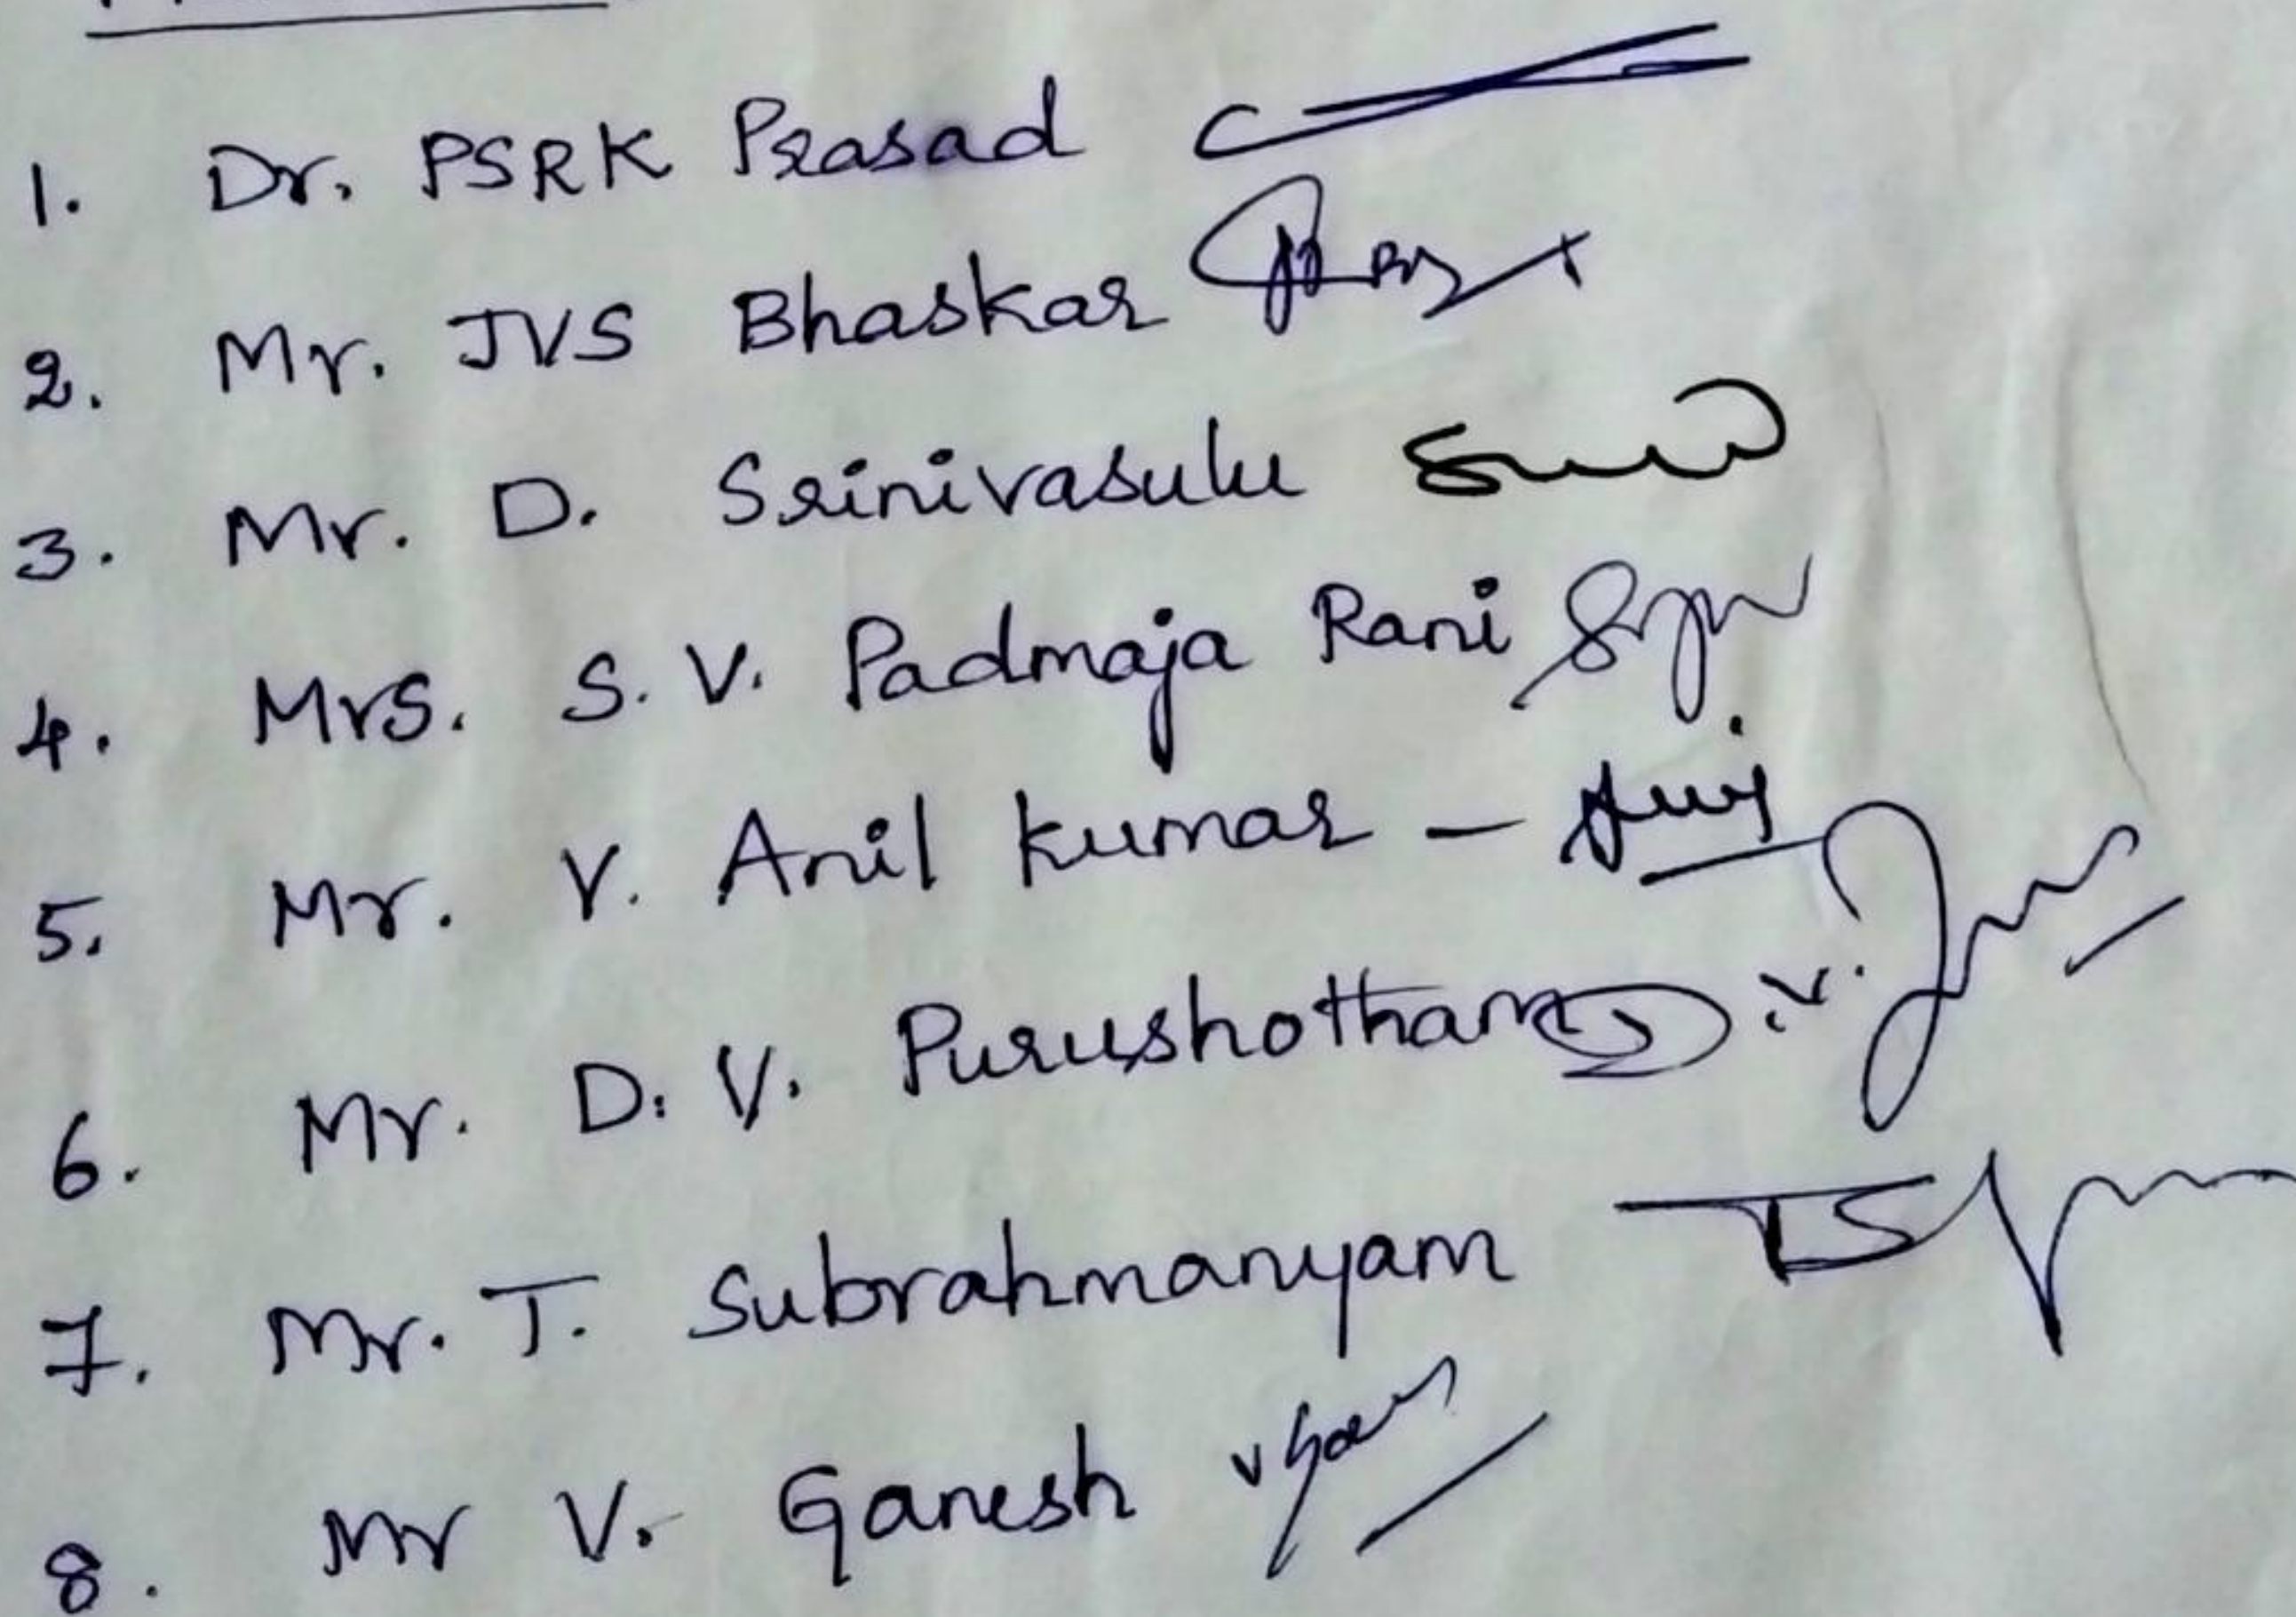 1. Dr. PSRK Prasad
2. Mr. JVS Bhaskar
3. Mr. D. Srinivasulu
4. Mrs. S. V. Padmaja Rani
5. Mr. V. Anil Kumar -
6. Mr. D. V. Purushotham
7. Mr. T. Subrahmanyam
8. Mr V. Ganesh